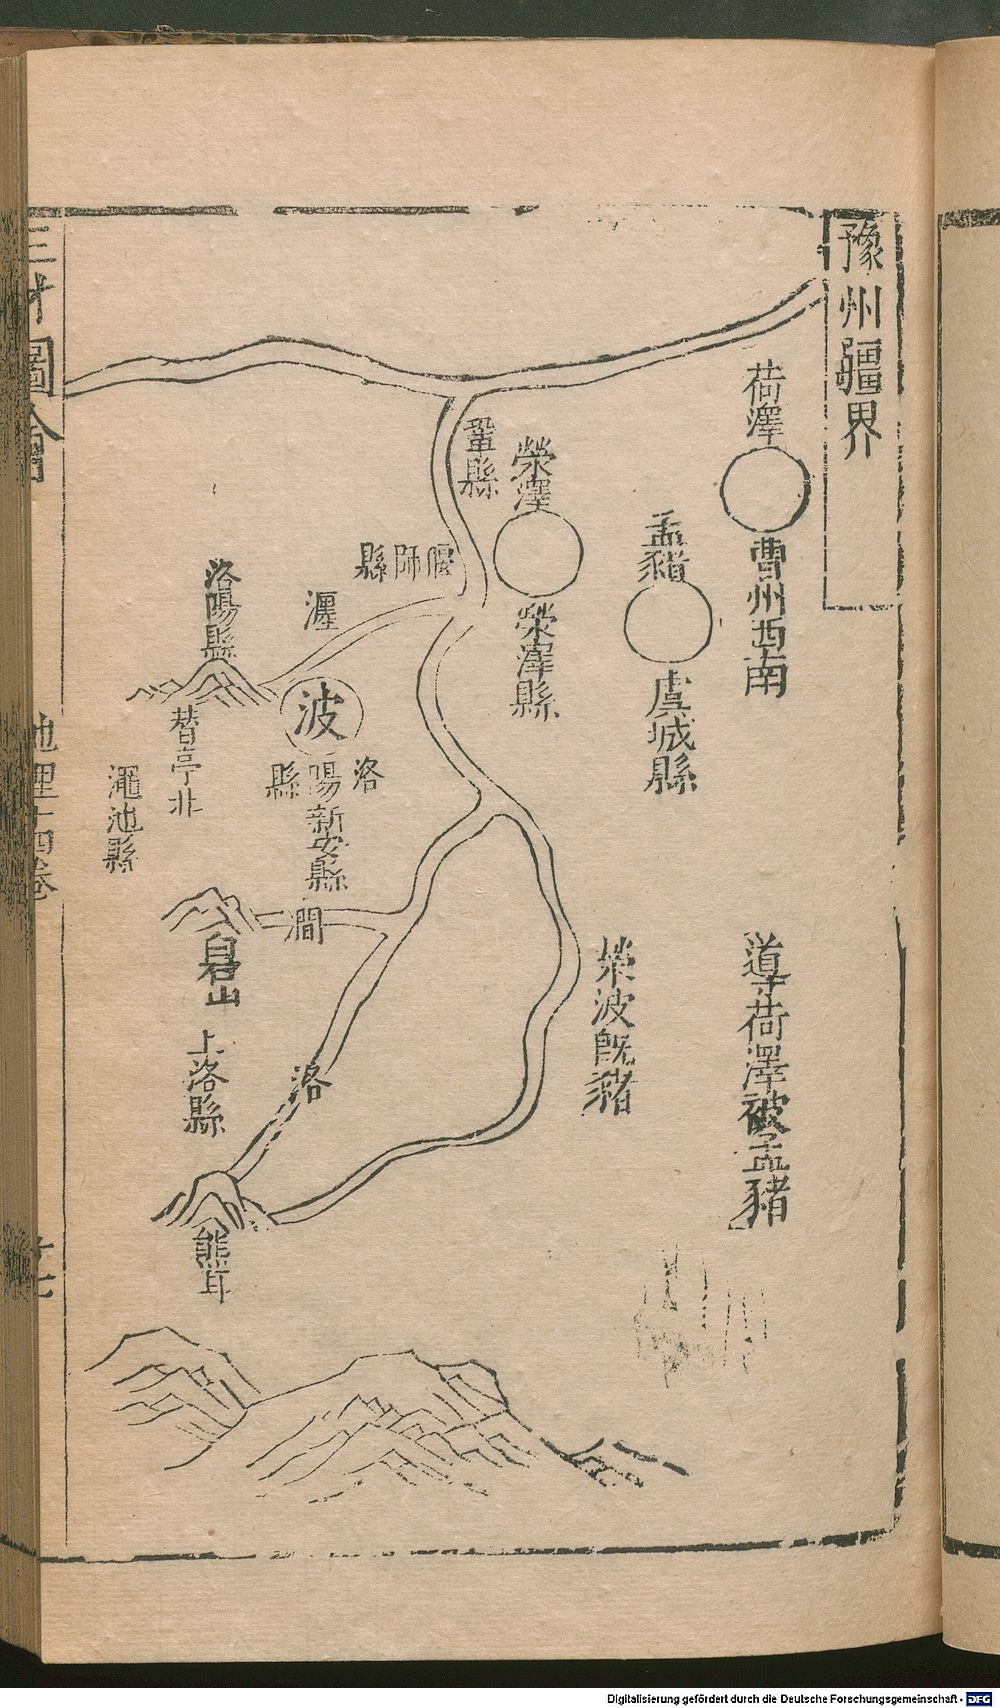 豫州疆界
荷澤
曹州西南
導荷澤被孟豬
孟豬
虞城縣
滎波既豬
滎澤
滎澤縣
鞏縣
偃師縣
瀍
波
洛陽縣
新安縣
澗
洛
洛陽縣
替亭北
澠池縣
白石山
上洛縣
熊耳
三才圖會
地理十四卷
Digitalisierung gefördert durch die Deutsche Forschungsgemeinschaft - DFG